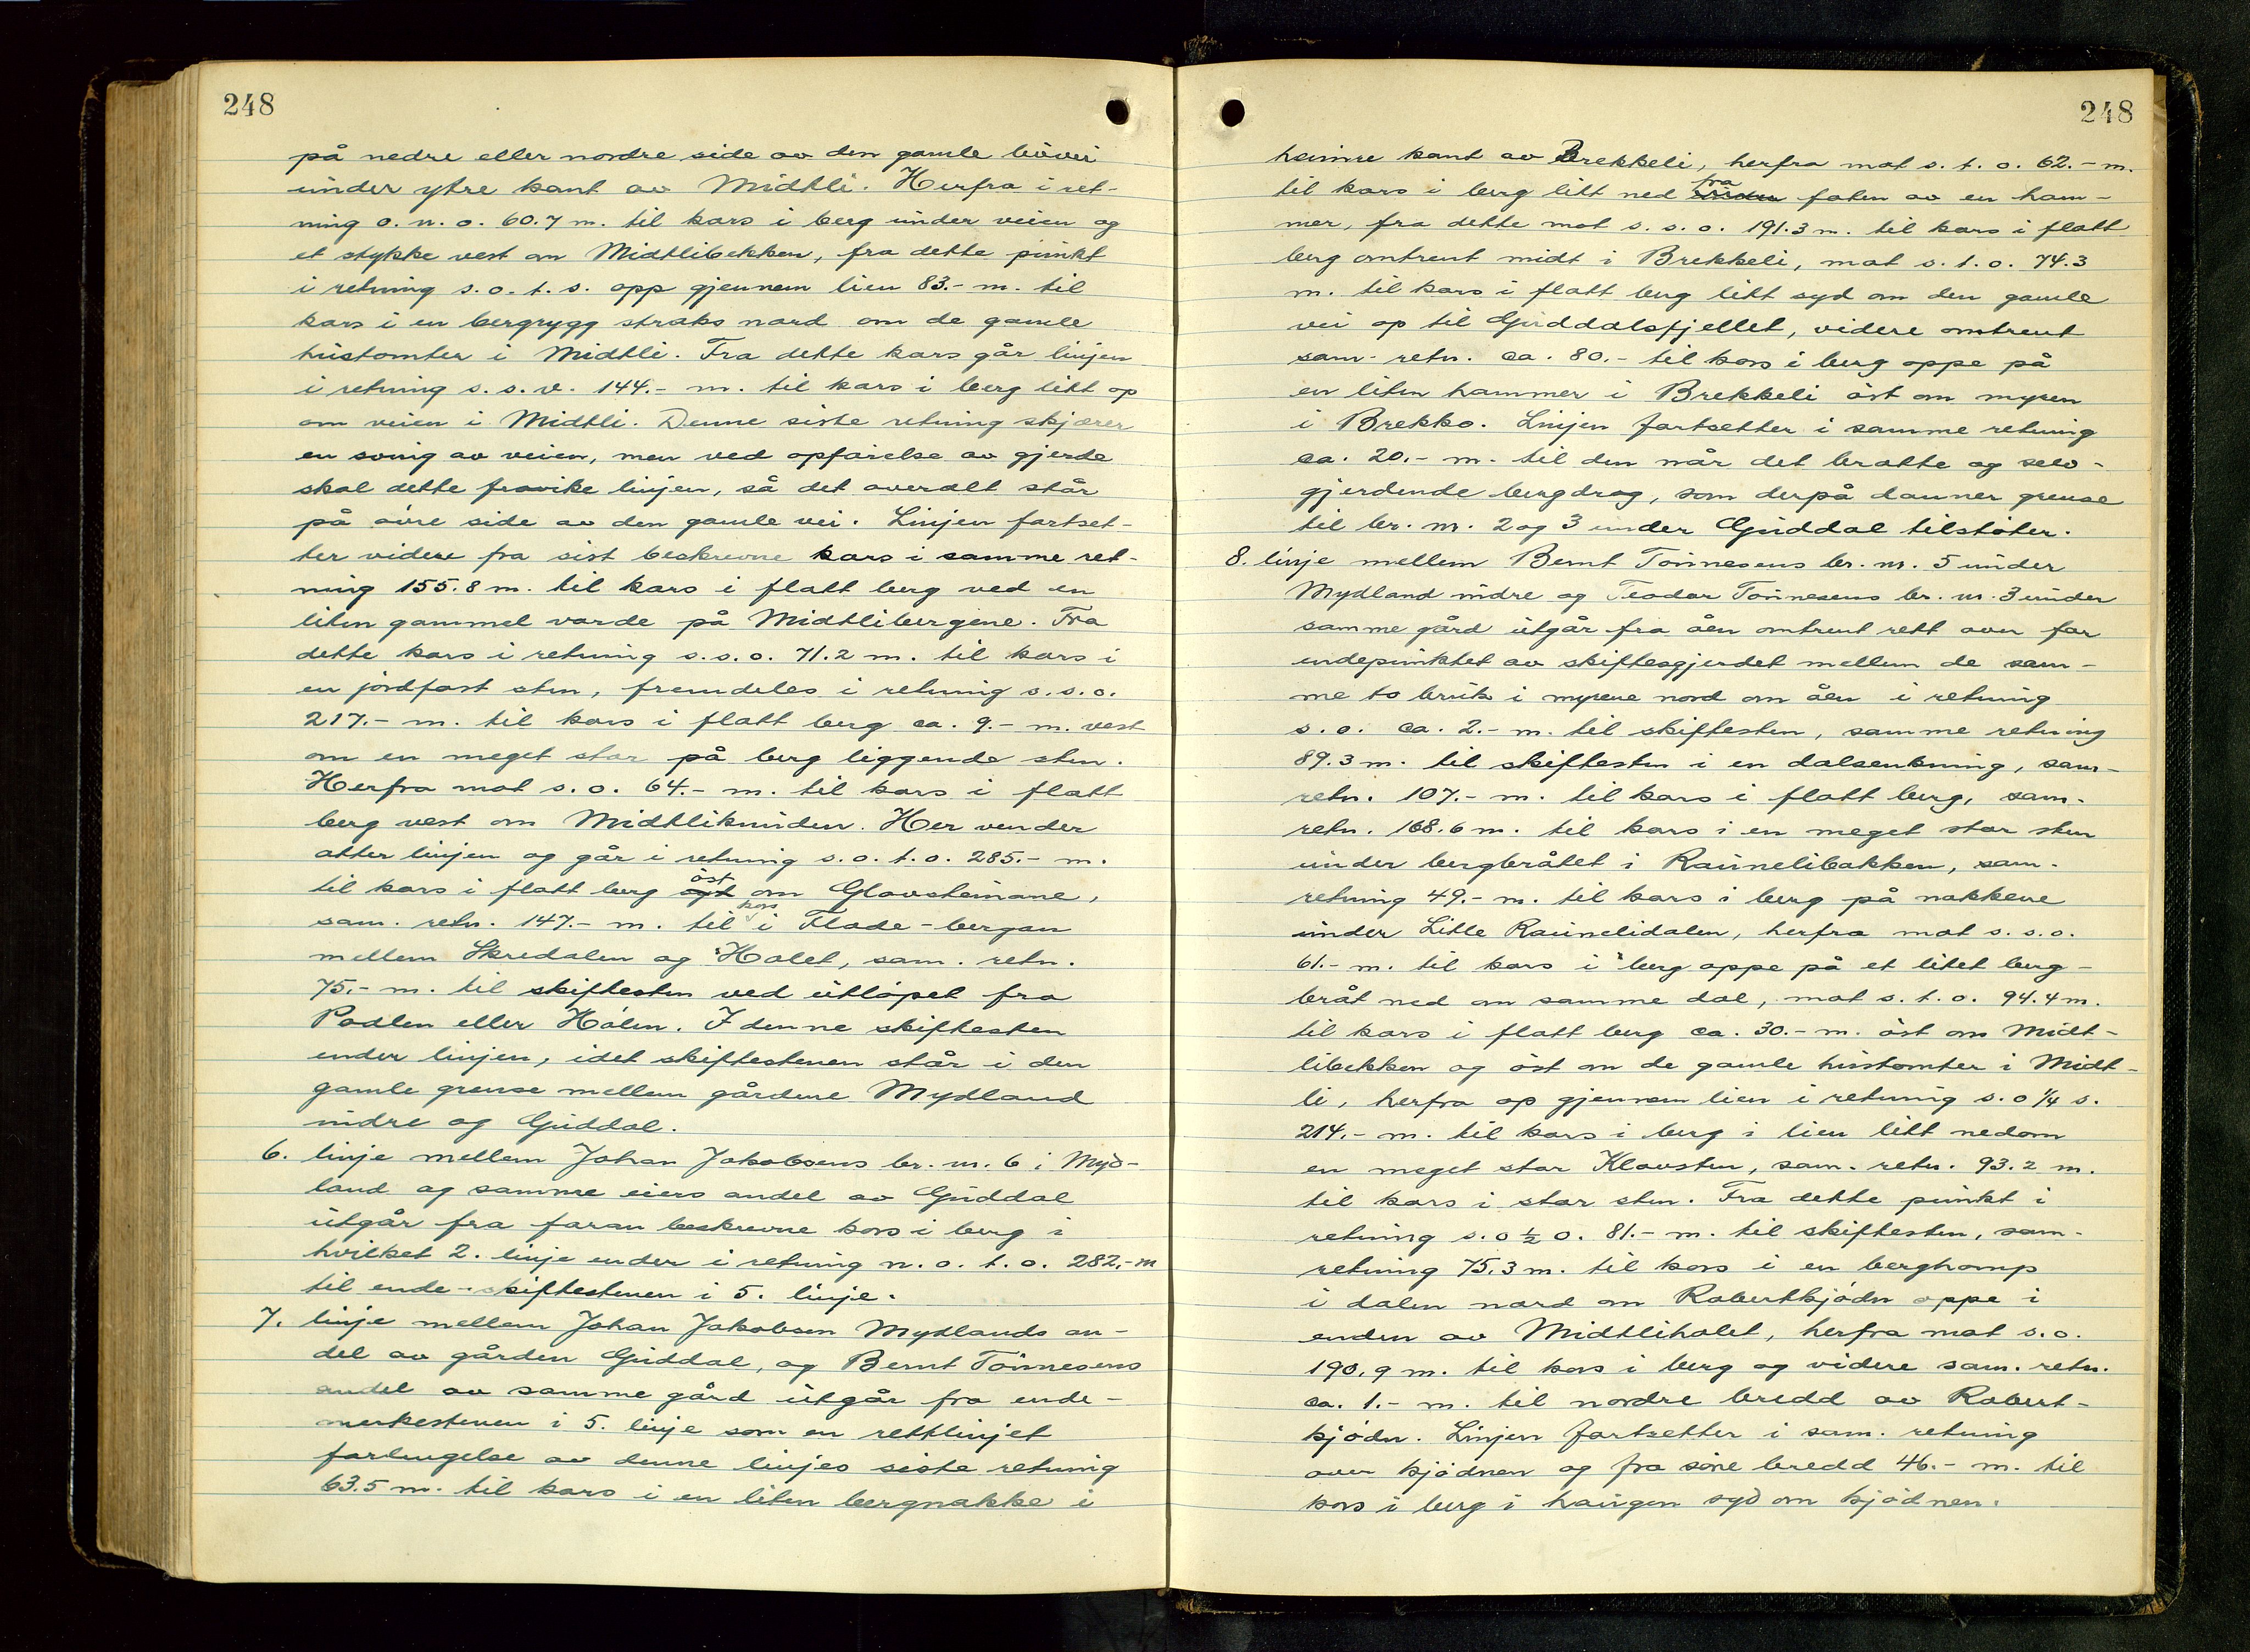 248
på nedre eller nordre side av den gamle bøvei
under ytre kant av Midtli. Herfra i ret-
ning o. n. o. 60.7 m. til kors i berg under veien og
et stykke vest om Midtlibekken, fra dette punkt
i retning s. o. t. s. opp gjennem lien 83.- m. til
kors i en bergrygg straks nord om de gamle
hustomter i Midtli. Fra dette kors går linjen
i retning s. s. v. 144.- m. til kors i berg litt op
om veien i Midtli. Denne siste retning skjærer
en sving av veien, men ved opførelse av gjerde
skal dette fravike linjen, så det overalt står
på øvre side av den gamle vei. Linjen fortset-
ter videre fra sist beskrevne kors i samme ret-
ning 155.8 m. til kors i flatt berg ved en
liten gammel varde på Midtlibergene. Fra
dette kors i retning s. s. o. 71.2 m. til kors i
en jordfast sten, fremdeles i retning s. s. o.
217.- m. til kors i flatt berg ca. 9.- m. vest
om en meget stor på berg liggende sten.
Herfra mot s. o. 64.- m. til kors i flatt
berg vest om Midtliknuden. Her vender
atter linjen og går i retning s. o. t. o. 285.- m.
til kors i flatt berg øst om Glovsteinane,
sam. retn. 147.- m. til kors i Flade-bergan
mellem Skredalen og Holet, sam. retn.
75.- m. til skiftesten ved utløpet fra
Podlen eller Hølen. I denne skiftesten
ender linjen, idet skiftestenen står i den
gamle grense mellem gårdene Mydland
indre og Guddal.
6. linje mellem Johan Jakobsens br. nr. 6 i Myd-
land og samme eiers andel av Guddal
utgår fra foran beskrevne kors i berg i
hvilket 2. linje ender i retning n. o. t. o. 282.- m
til ende-skiftestenen i 5. linje.
7. linje mellem Johan Jakobsen Mydlands an-
del av gården Guddal, og Bernt Tönnesens
andel av samme gård utgår fra ende-
merkestenen i 5. linje som en rettlinjet
forlengelse av denne linjes siste retning
63.5 m. til kors i en liten bergnakke i
248
heimre kant av Brekkeli, herfra mot s. t. o. 62.- m.
til kors i berg litt ned fra foten av en ham-
mer, fra dette mot s. s. o. 191.3 m. til kors i flatt
berg omtrent midt i Brekkeli, mot s. t. o. 74.3
m. til kors i flatt berg litt syd om den gamle
vei op til Guddalsfjellet, videre omtrent
sam- retn. ca. 80.- til kors i berg oppe på
en liten hammer i Brekkeli øst om myren
i Brekko. Linjen fortsetter i samme retning
ca. 20.- m. til den når det bratte og selv-
gjerdende bergdrag, som derpå danner grense
til br. nr. 2 og 3 under Guddal tilstøter.
8. linje mellem Bernt Tönnesens br. nr. 5 under
Mydland indre og Teodor Tönnesens br. nr. 3 under
samme gård utgår fra åen omtrent rett over for
endepunktet av skiftesgjerdet mellem de sam-
me to bruk i myrene nord om åen i retning
s. o. ca. 2.- m. til skiftesten, samme retning
89.3 m. til skiftesten i en dalsenkning, sam-
retn. 107.- m. til kors i flatt berg, sam.
retn. 168.6 m. til kors i en meget stor sten
under bergbråtet i Raunelibakken, sam-
retning 49.- m. til kors i berg på nakkene
under Litle Raunelidalen, herfra mot s. s. o.
61.- m. til kors i berg oppe på et litet berg-
bråt ned om samme dal, mot s. t. o. 94.4 m.
til kors i flatt berg ca. 30.- m. øst om Midt-
libekken og øst om de gamle hustomter i Midt-
li, herfra op gjennem lien i retning s. o ¼ s.
214.- m. til kors i berg i lien litt nedom
en meget stor Klovsten, sam. retn. 93.2 m.
til kors i stor sten. Fra dette punkt i
retning s. o ½ o. 81.- m. til skiftesten, sam-
retning 75.3 m. til kors i en berghomp
i dalen nord om Robertkjødn oppe i
enden av Midtliholet, herfra mot s. o.
190.9 m. til kors i berg og videre sam. retn.
ca. 1.- m. til nordre bredd av Robert-
kjødn. Linjen fortsetter i sam. retning
over kjødnen og fra søre bredd 46.- m. til
kors i berg i haugen syd om kjødnen.